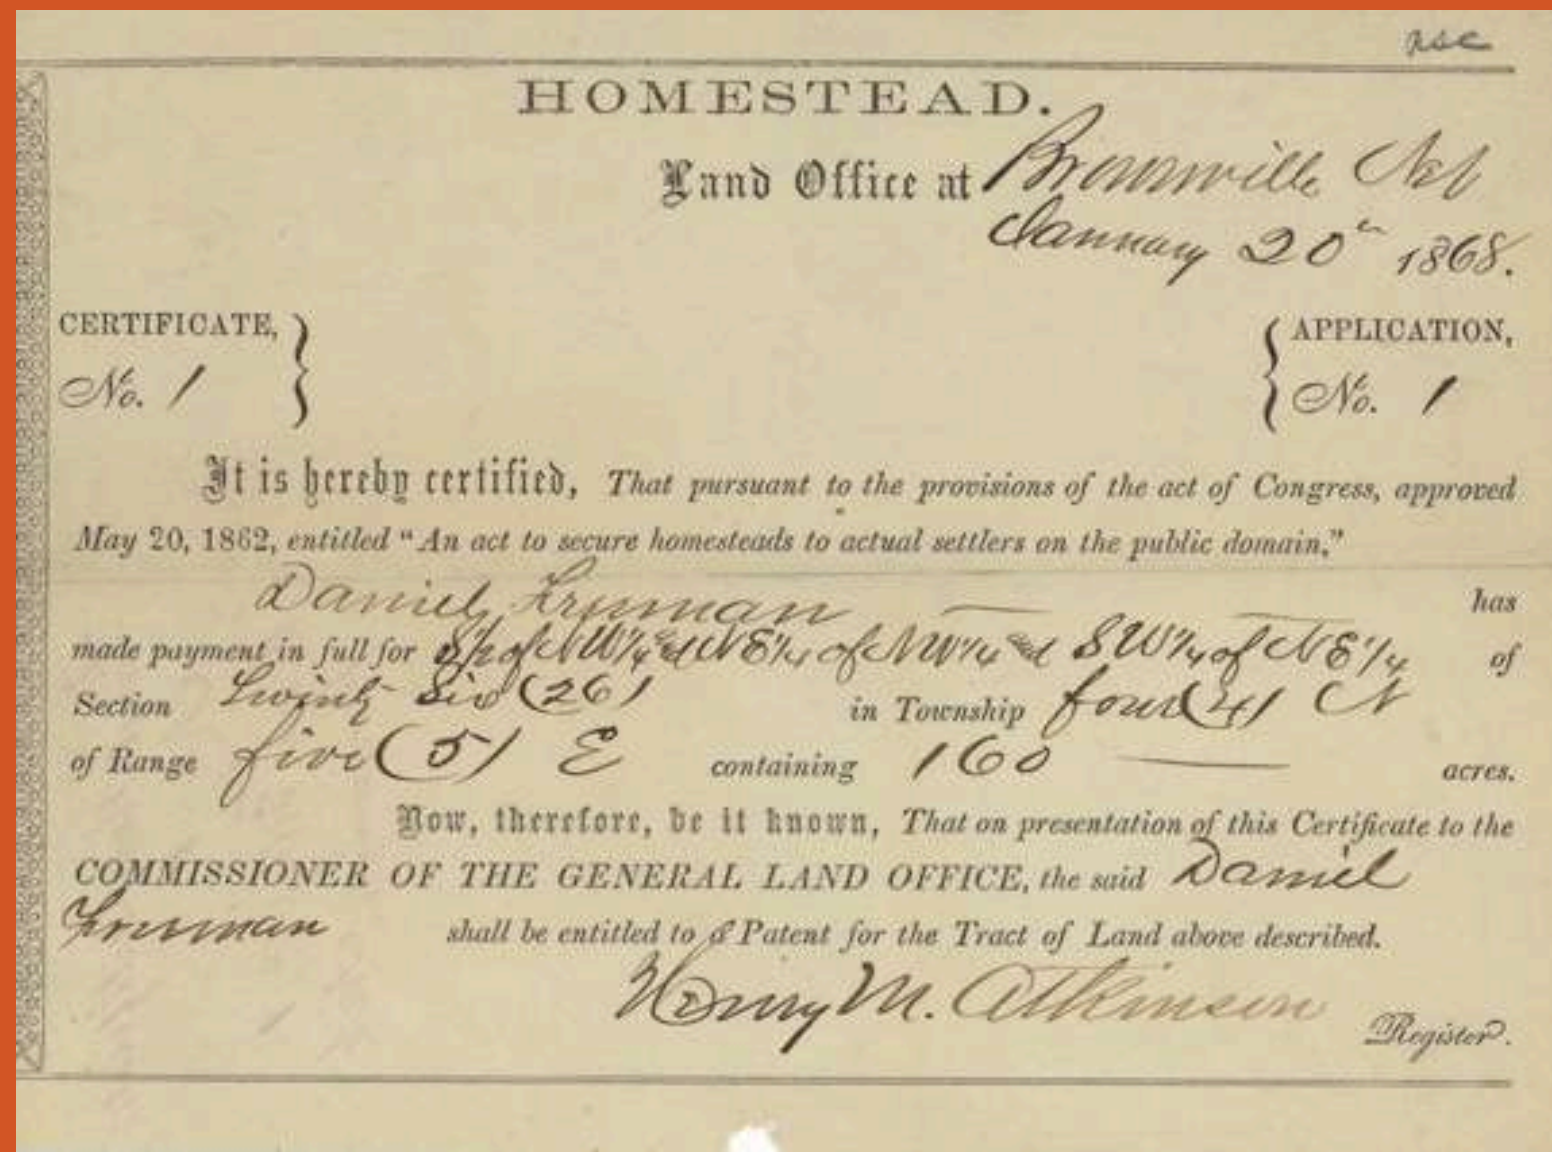 HOMESTEAD.
Land Office at Brownville Neb
January 20th 1868.
CERTIFICATE,
No. 1
APPLICATION,
No. 1
It is hereby certified, That pursuant to the provisions of the act of Congress, approved
May 20, 1862, entitled “An act to secure homesteads to actual settlers on the public domain,”
Daniel Freeman has
made payment in full for S½ of NW¼ & NE¼ of NW¼ and SW¼ of NE¼ of
Section Twenty Six (26) in Township four (4) N
of Range five (5) E containing 160 acres.
Now, therefore, be it known, That on presentation of this Certificate to the
COMMISSIONER OF THE GENERAL LAND OFFICE, the said Daniel
Freeman shall be entitled to a Patent for the Tract of Land above described.
Henry M. Atkinson
Register.